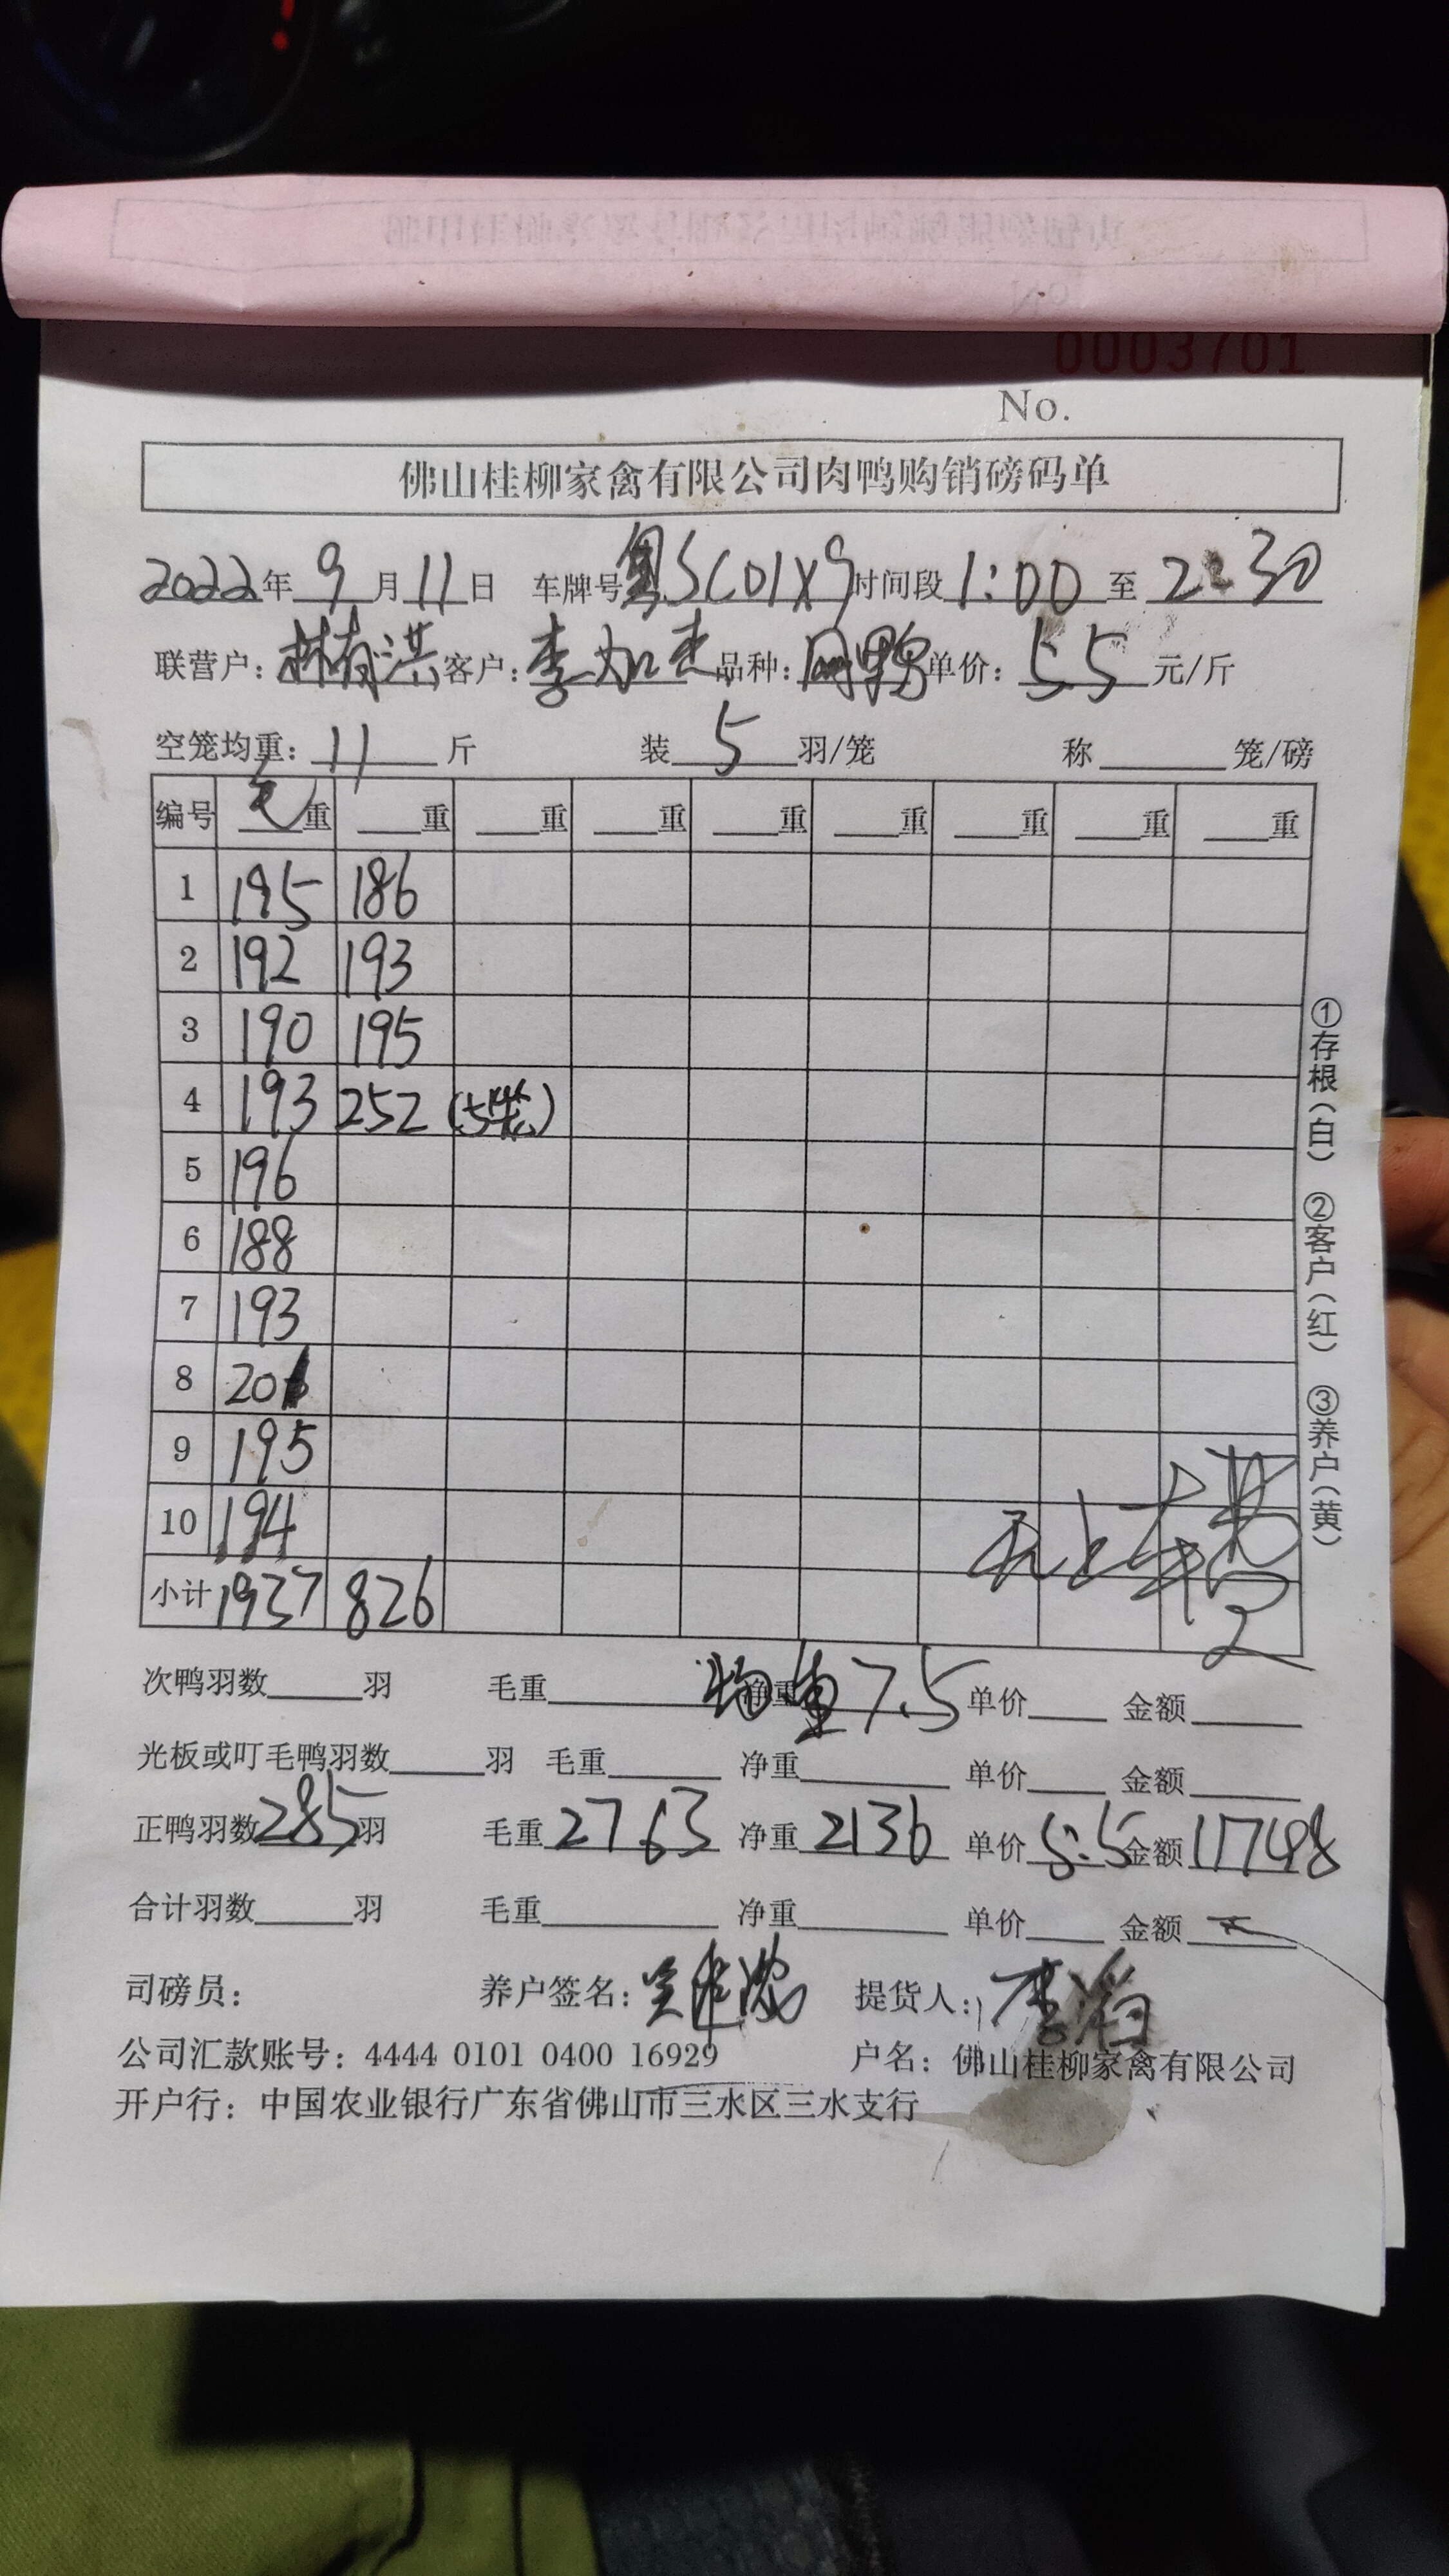 0003701
No.
佛山桂柳家禽有限公司肉鸭购销磅码单
2022年 9月11日 车牌号粤SC01X9时间段1:00至2:30
联营户：林有洪客户：李加杰品种： 单价：5.5元/斤
空笼均重：11斤 装5羽/笼 称 笼/磅
编号 毛重 重 重 重 重 重 重 重 重
1 195 186
2 192 193
3 190 195
4 193 252 (5笼)
5 196
6 188
7 193
8 201
9 195
10 194
小计 1937 826
无上车费
次鸭羽数 羽 毛重 净重 均重7.5 单价 金额
光板或叮毛鸭羽数 羽 毛重 净重 单价 金额
正鸭羽数285羽 毛重2763 净重2136 单价5.5 金额11748
合计羽数 羽 毛重 净重 单价 金额
司磅员： 养户签名： 提货人：李
公司汇款账号：4444 0101 0400 16929 户名：佛山桂柳家禽有限公司
开户行：中国农业银行广东省佛山市三水区三水支行
①存根（白） ②客户（红） ③养户（黄）